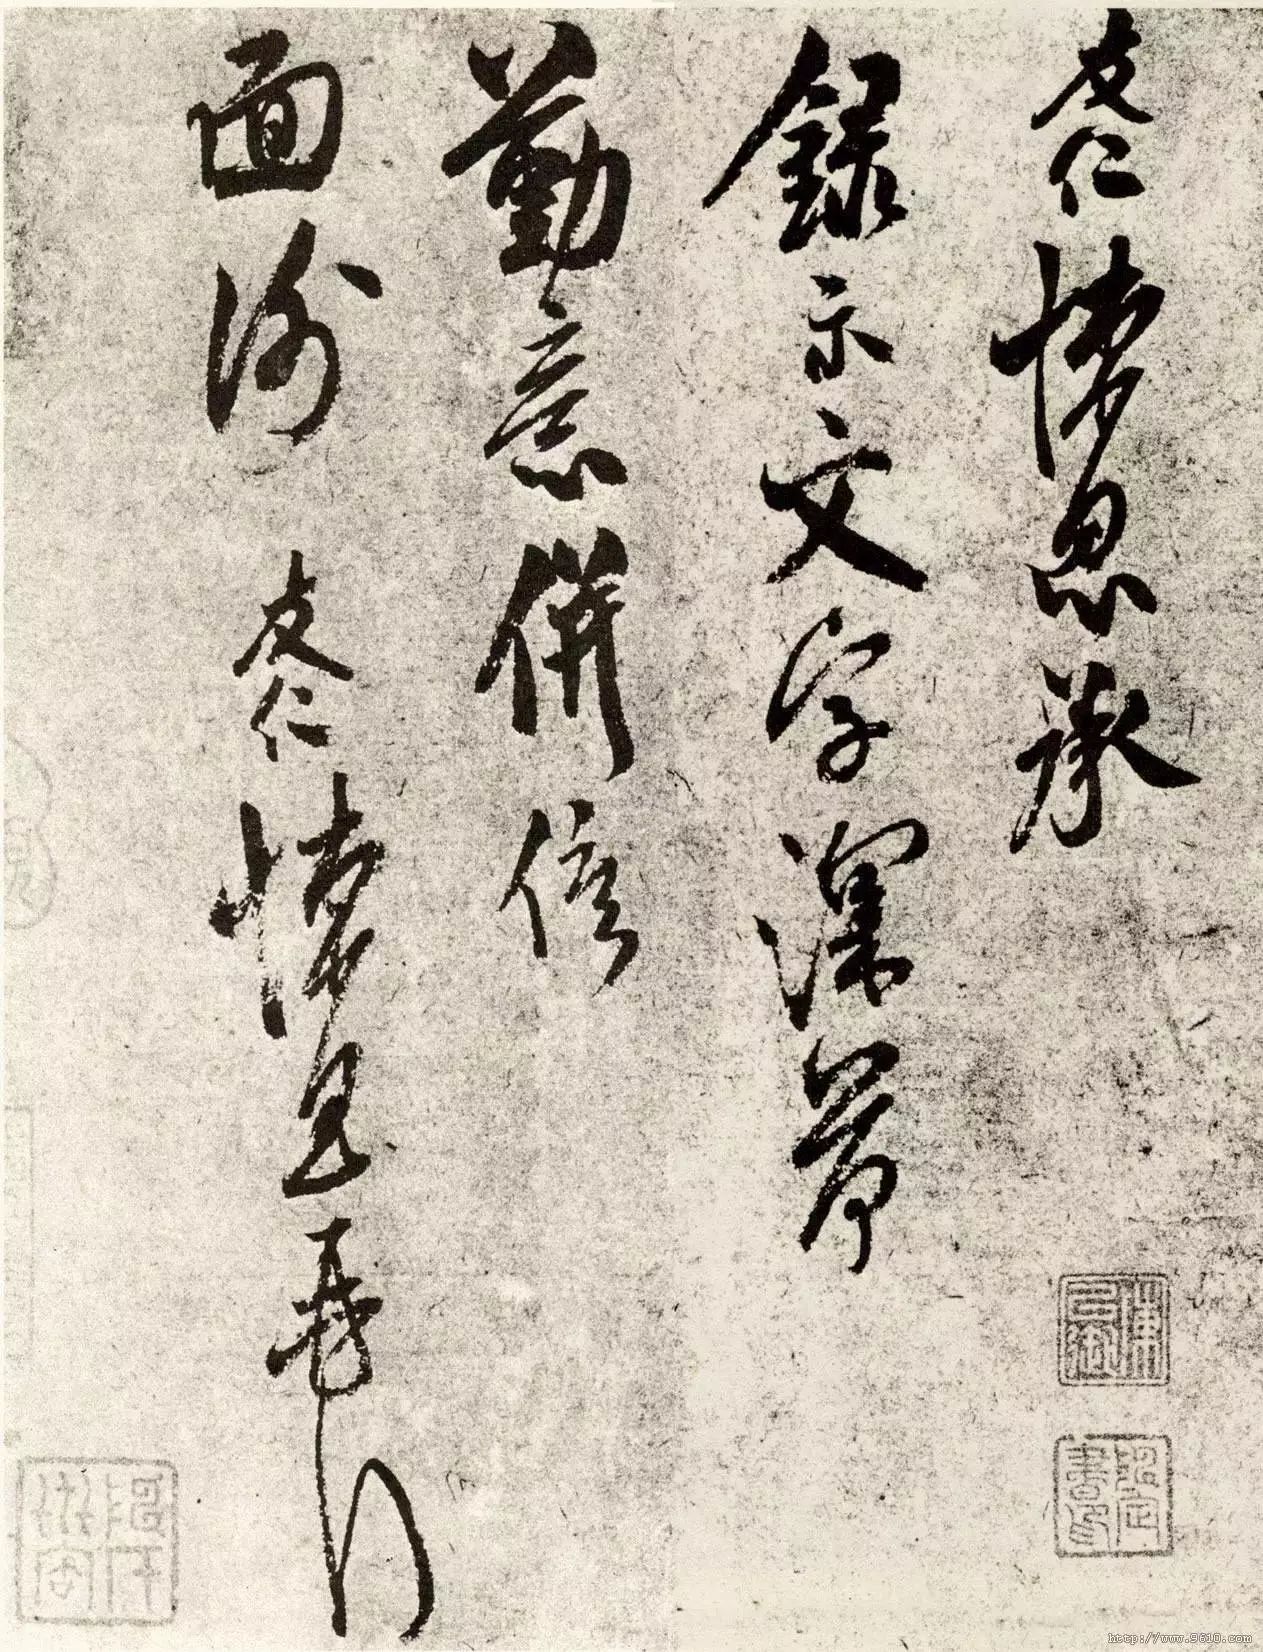 友仁悚息承
錄示文字深荷
勤意併俟
面謝 友仁悚息再拜
http://www.9610.com